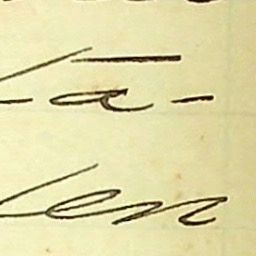 ta-
len